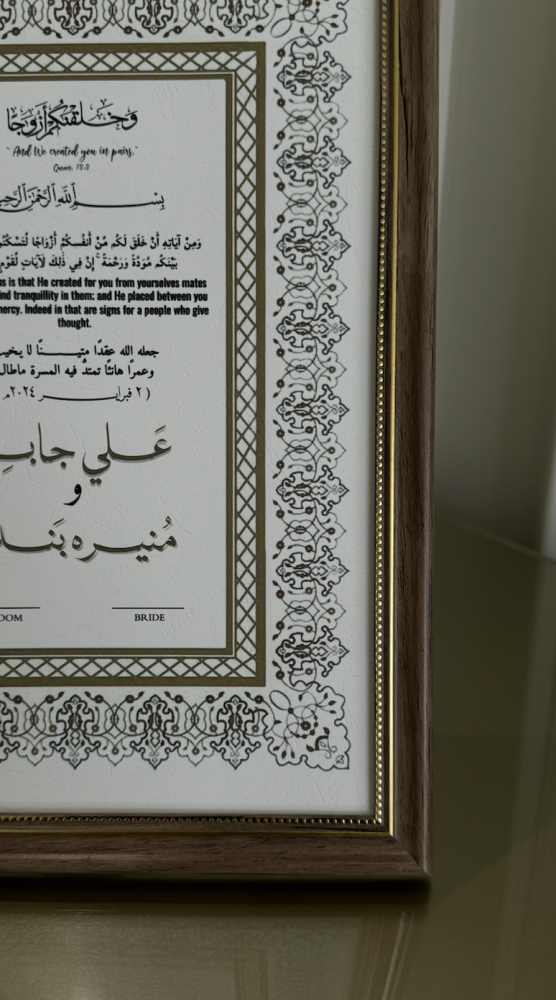 وَخَلَقْنَكُمْ أَزْوَجًا
"And We created you in pairs."
Quran 78:8
بِسْمِ اللَّهِ الرَّحْمَنِ
وَمِنْ آيَاتِهِ أَنْ خَلَقَ لَكُم مِّنْ أَنفُسِكُمْ أَزْوَاجًا
بَيْنَكُم مَّوَدَّةً وَرَحْمَةً ۚ إِنَّ فِي ذَٰلِكَ لَآيَاتٍ لِّقَوْمٍ
is that He created for you from yourselves mates
tranquillity in them; and He placed between you
mercy. Indeed in that are signs for a people who give
thought.
جعله الله عقدًا متينًا لا
وعمرًا هانئًا تمتدُّ فيه المسرة ماطال
( ٢ فبراير ٢٠٢٤م
عَلي
و
مُنيره
BRIDE